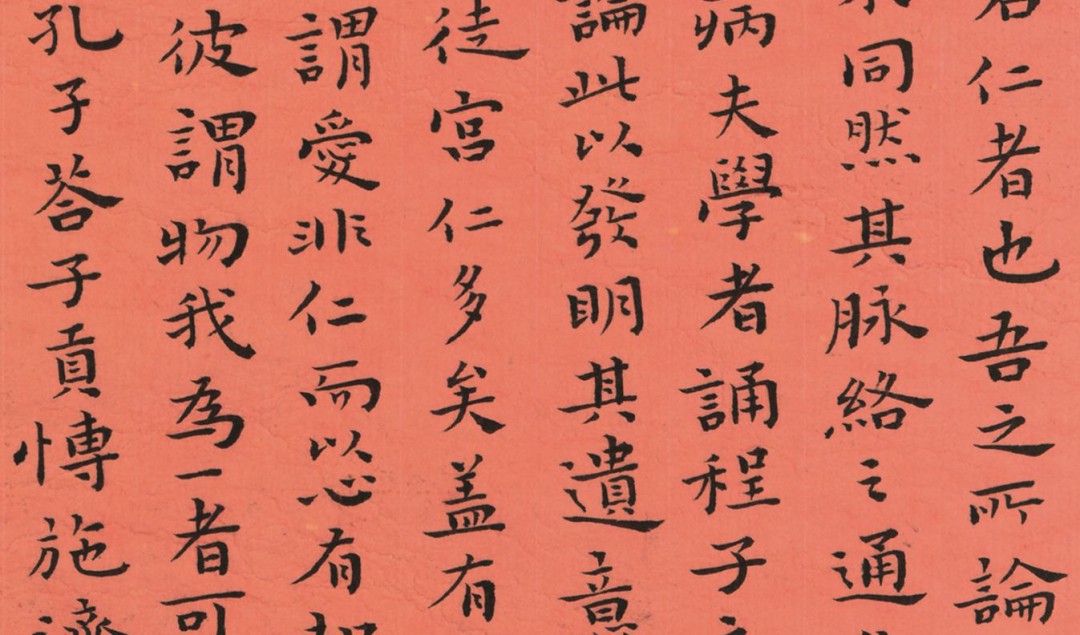 名仁者也吾之所論
不同然其脉絡之通
病夫學者誦程子之
論此以發明其遺意
徒宫仁多矣盖有
謂愛非仁而以心有知
彼謂物我為一者可
孔子荅子貢愽施濟